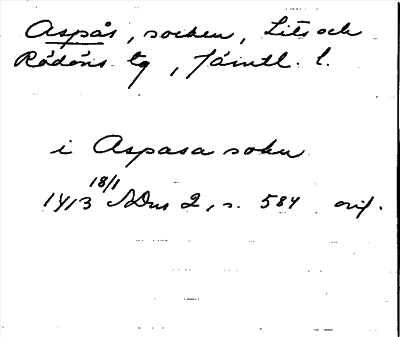 Aspås, socken, Lits och
Rödöns tg, Jämtl. l.
i Aspasa sokn
1413 18/1 SDns 2, s. 584 orig.